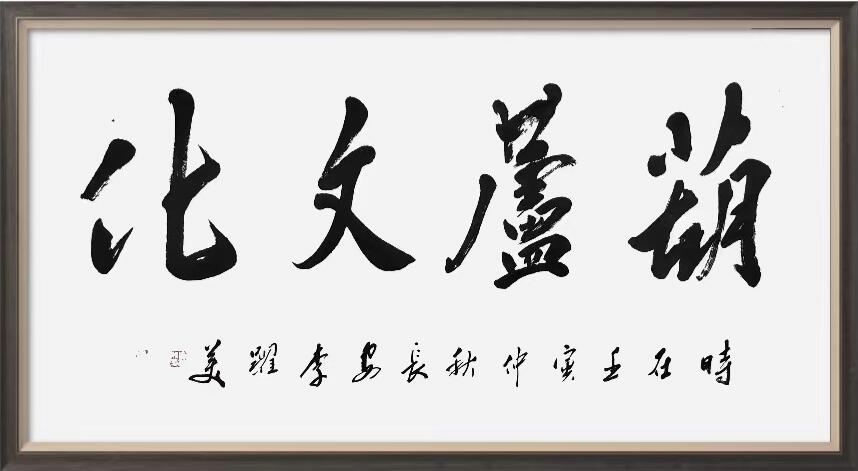 葫蘆文化
時在壬寅仲秋長安李躍美